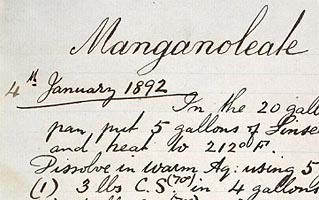 Manganoleate
4th January 1892
In the 20 gall
pan, put 5 gallons of Linse
and heat to 212° F.
Dissolve in warm Aq: using 5
(1) 3 lbs C.S. (70°) in 4 gallons